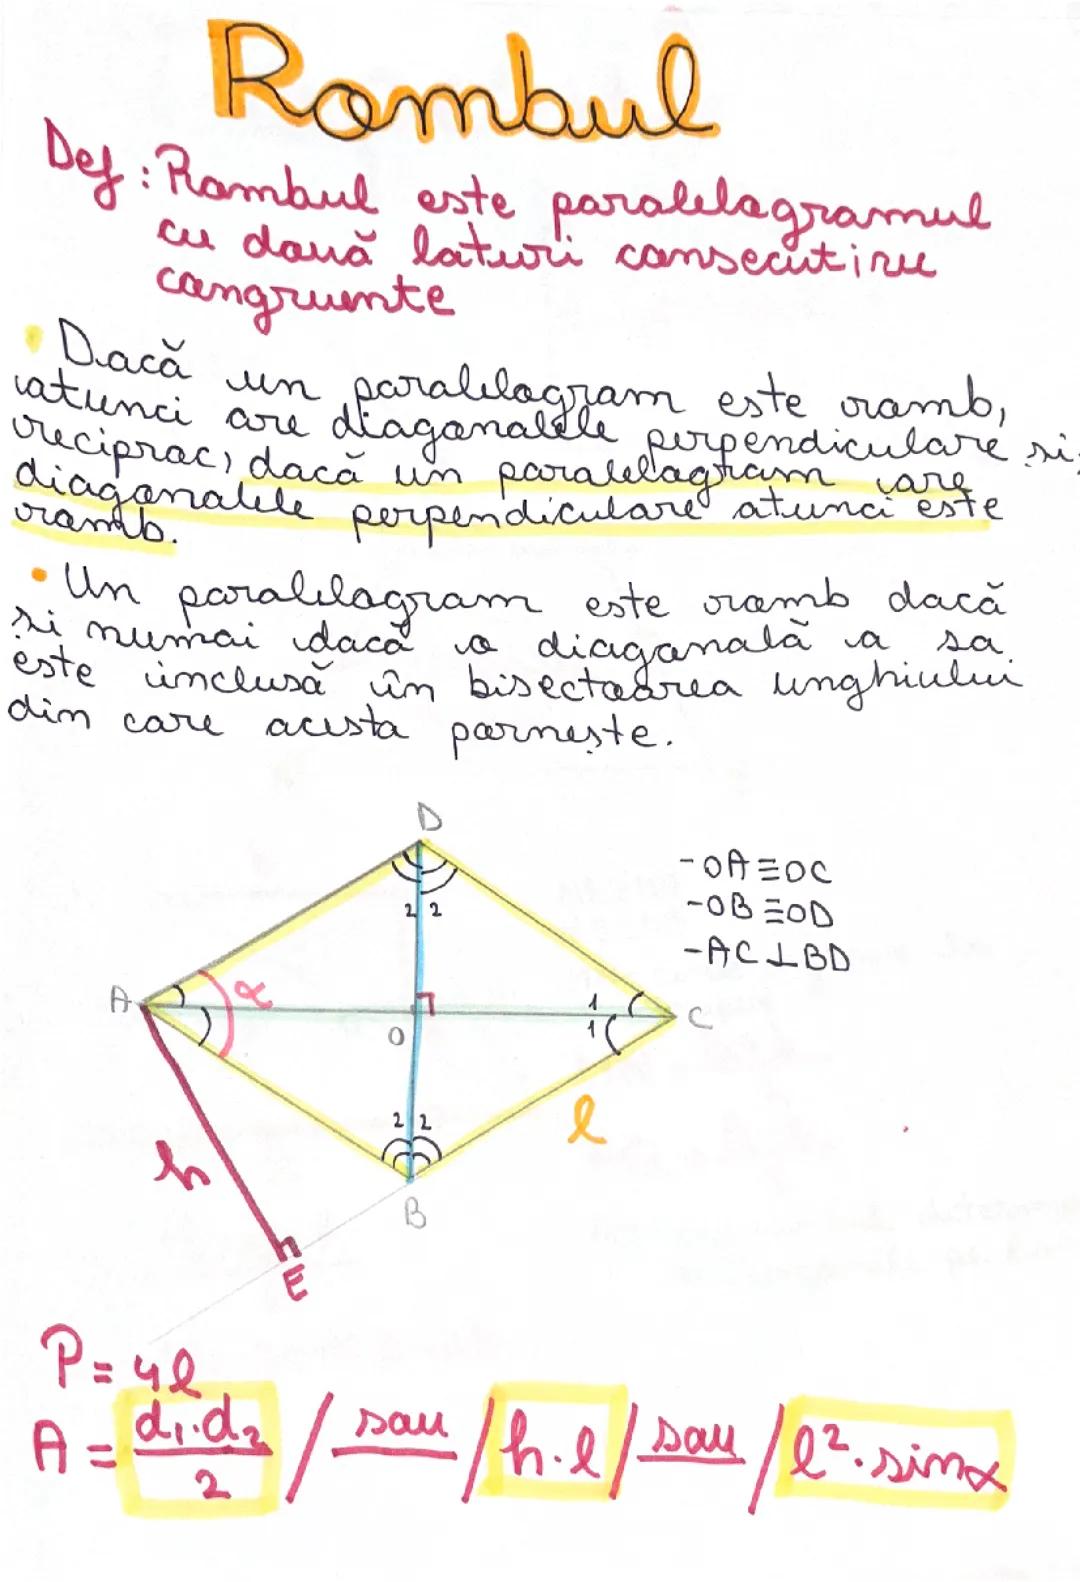 Rombul
Def: Rombul este paralelogramul
cu două laturi consecutive
congruente
• Dacă un paralelogram este romb,
atunci are diagonalele perpendiculare și,
reciproc, dacă un paralelogram are
diagonalele perpendiculare atunci este
romb.
• Un paralelogram este romb dacă
și numai dacă o diagonală a sa
este inclusă în bisectoarea unghiului
din care acesta pornește.
D
-OA≡OC
-OB≡OD
-AC⊥BD
2 2
A α 1 C
O 1
2 2 l
h B
E
P=4l
A = d₁·d₂/2 / sau / h·l / sau / l²·sinα